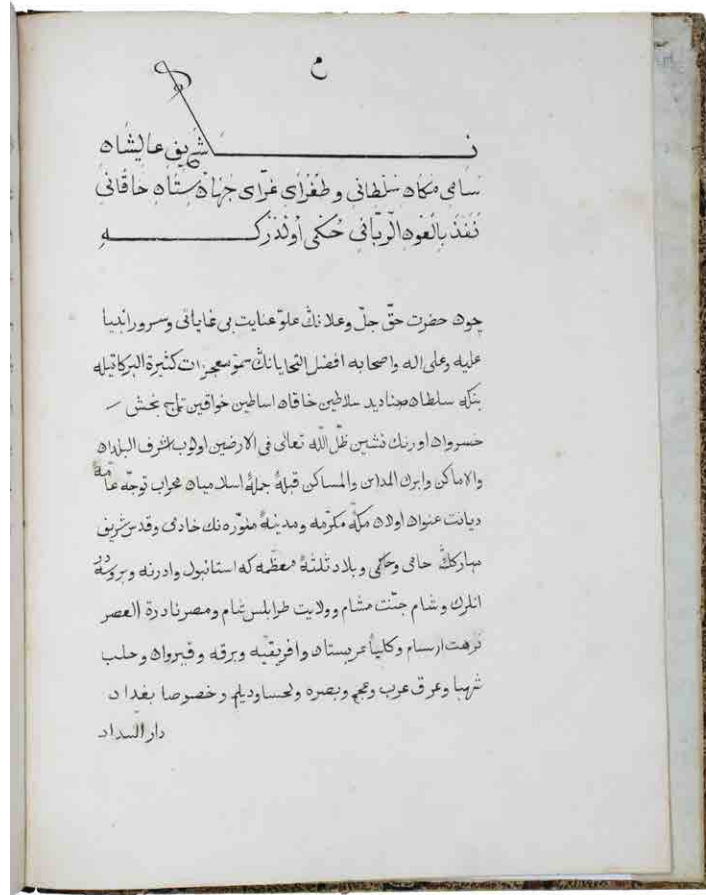 م
نشریف عالیشان
سامی مکان سلطانی و طغرای غرّای جهان ستان خاقانی
نفذ بالعون الربّانی حکمی اولدرکه
چون حضرت حقّ جلّ وعلانك علوّ عنایت بی غایاتی وسرور انبیا
علیه وعلی اله واصحابه افضل التحایانك سموّ معجزات کثیرة البرکاتیله
بنکه سلطان صنادید سلاطین خاقان اساطین خواقین تاج بخش
خسروان اورنك نشین ظلّ اللّه تعالی فی الارضین اولوب اشرف البلدان
والاماکن وابرك المداین والمساکن قبلهٔ جملهٔ اسلامیان محراب توجّه عامّهٔ
دیانت عنوان اولان مکّهٔ مکرّمه ومدینهٔ منوّره نك خادمی وقدس شریف
مبارکك حامی وحاکمی وبلاد ثلثهٔ معظّمه که استانبول وادرنه وبروسه در
انلرك وشام جنّت مشام وولایت طرابلس شام ومصر نادرة العصر
نزهت ارسام وکلیاً عربستان وافریقیه وبرقه وقیروان وحلب
شهبا وعراق عرب وعجم وبصره ولحسا ودیلم وخصوصا بغداد
دار السداد